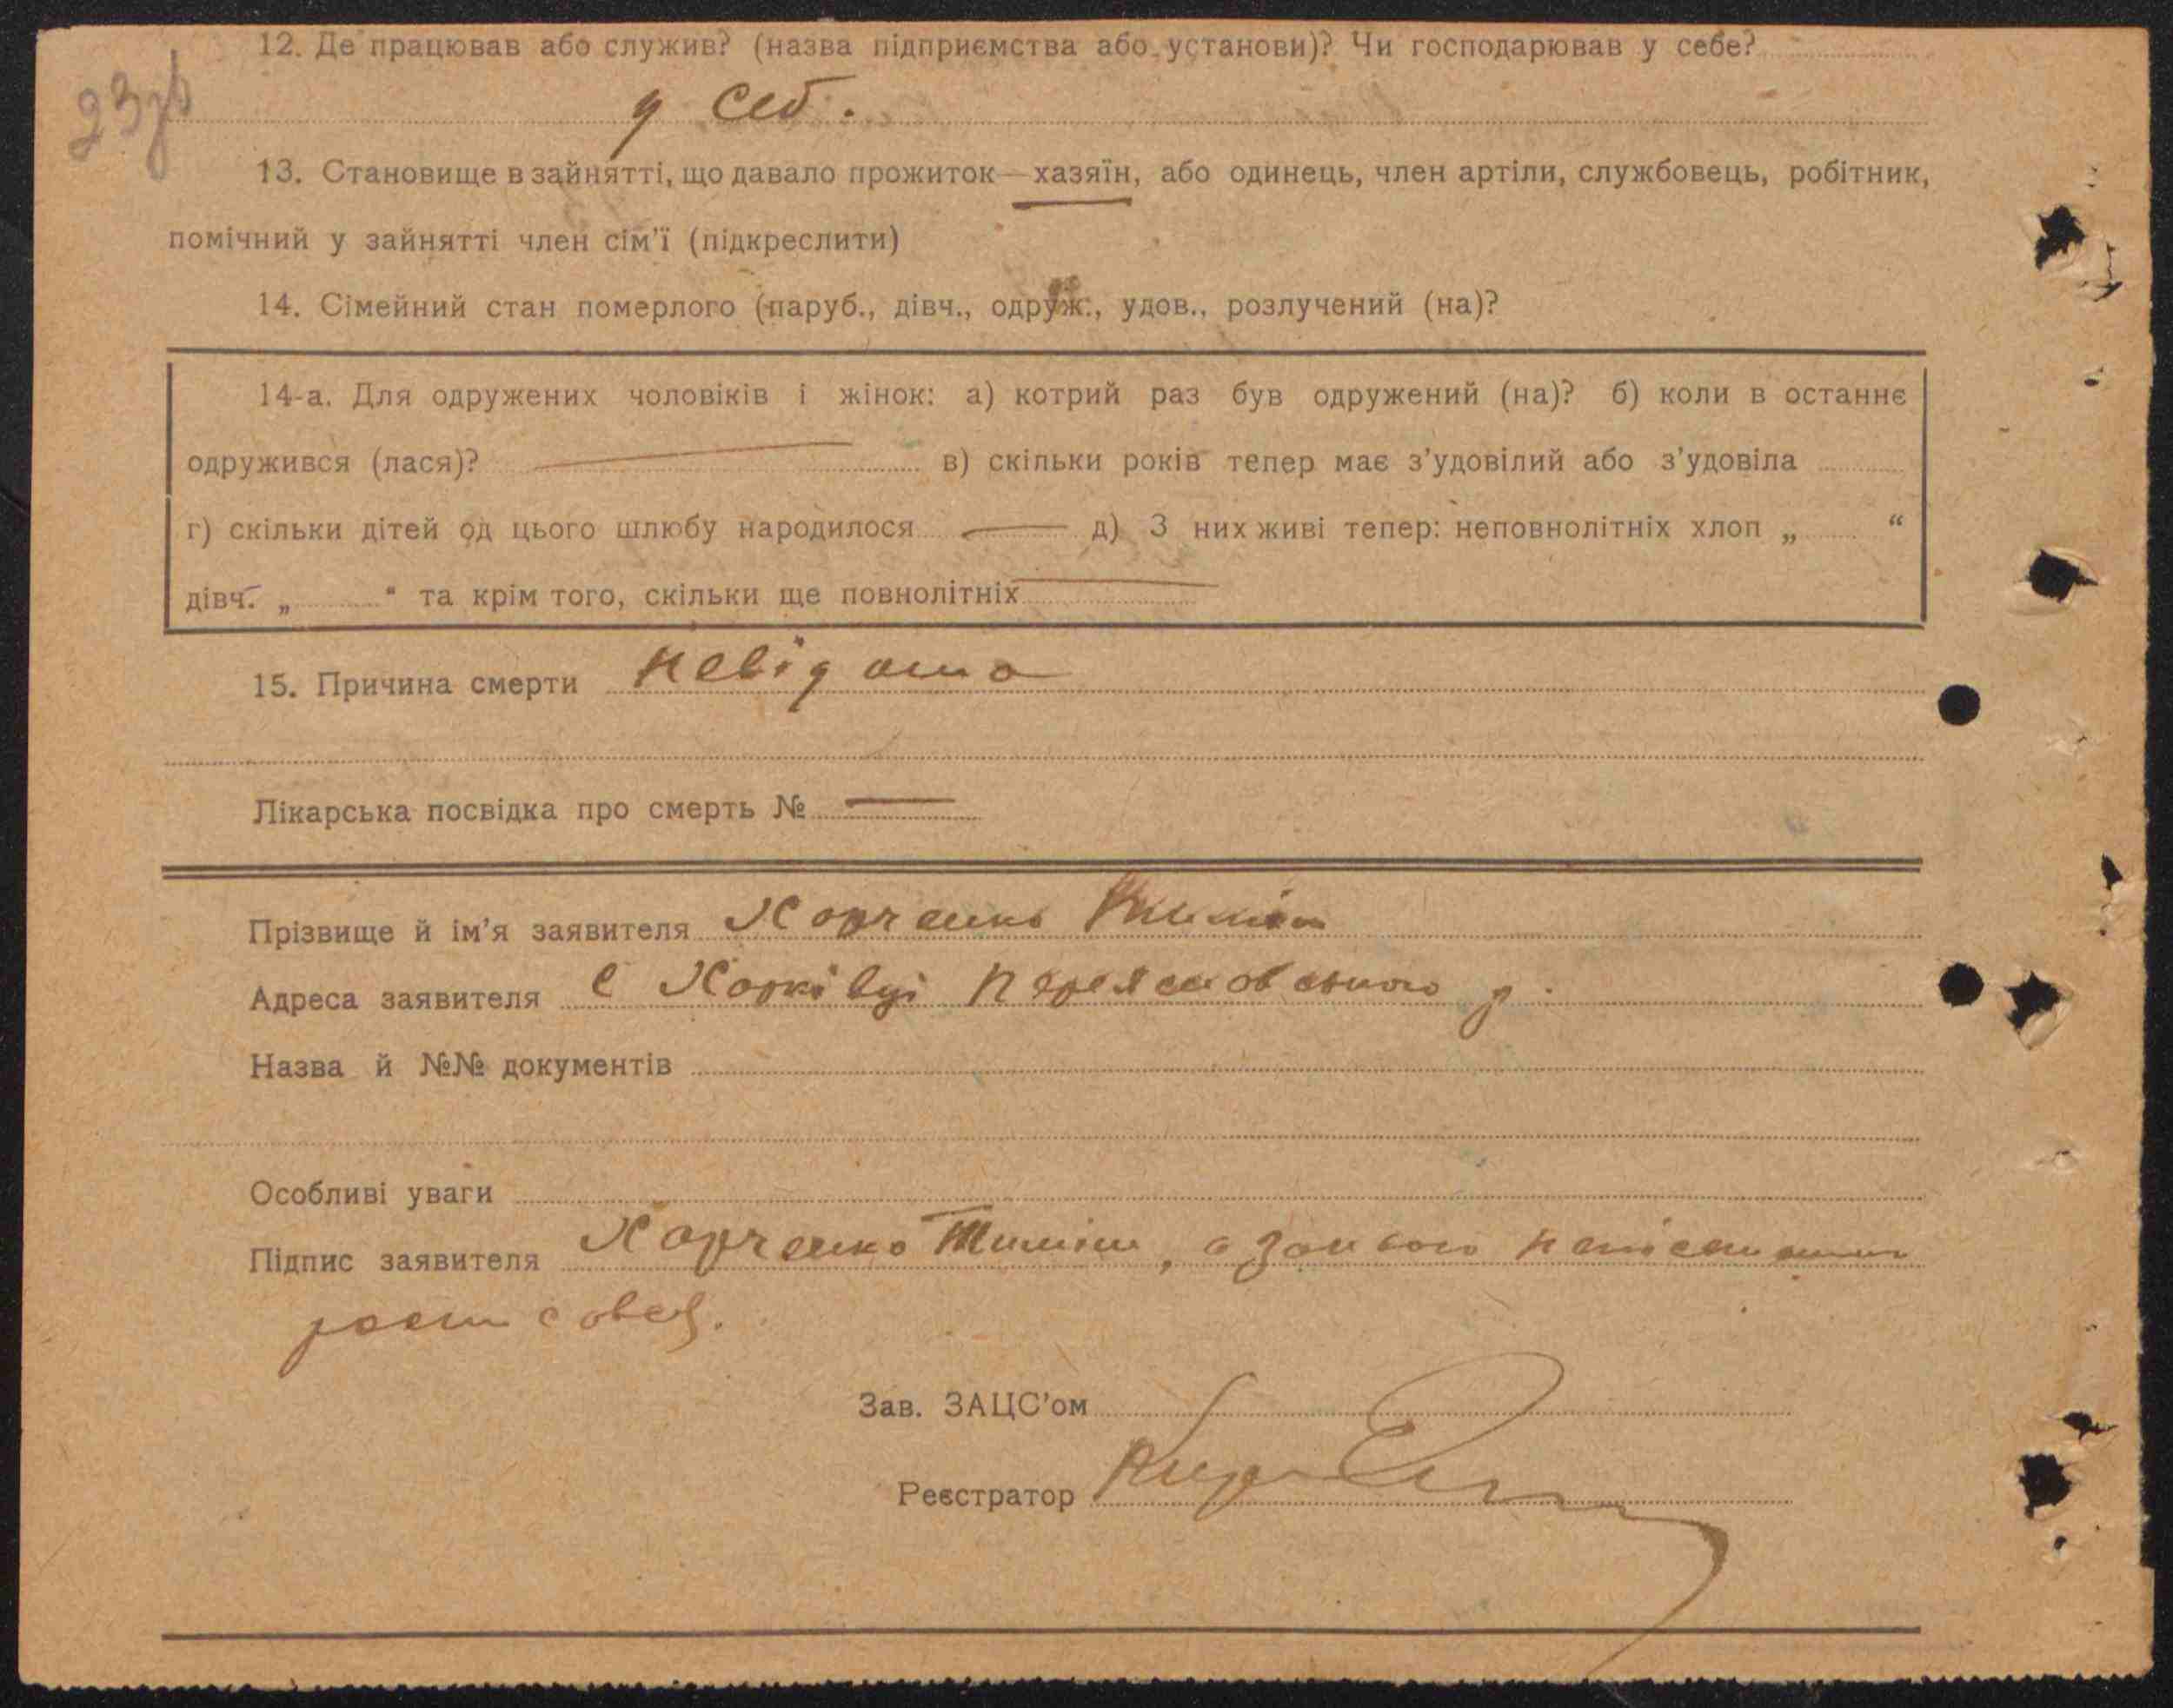 12. Де працював або служив? (назва підприємства або установи)? Чи господарював у себе?
23зв
у себ.
13. Становище в зайнятті, що давало прожиток—хазяїн, або одинець, член артіли, службовець, робітник,
помічний у зайнятті член сім'ї (підкреслити)
14. Сімейний стан померлого (паруб., дівч., одруж., удов., розлучений (на)?
14-а. Для одружених чоловіків і жінок: а) котрий раз був одружений (на)? б) коли в останнє
одружився (лася)? в) скільки років тепер має з'удовілий або з'удовіла
г) скільки дітей од цього шлюбу народилося д) З них живі тепер: неповнолітніх хлоп „ “
дівч. „ “ та крім того, скільки ще повнолітніх
15. Причина смерти невідома
Лікарська посвідка про смерть №
Прізвище й ім'я заявителя Харченко
Адреса заявителя с Харківці Переясловського р.
Назва й №№ документів
Особливі уваги
Підпис заявителя Харченко а за його неписьмен
Зав. ЗАЦС'ом
Реєстратор